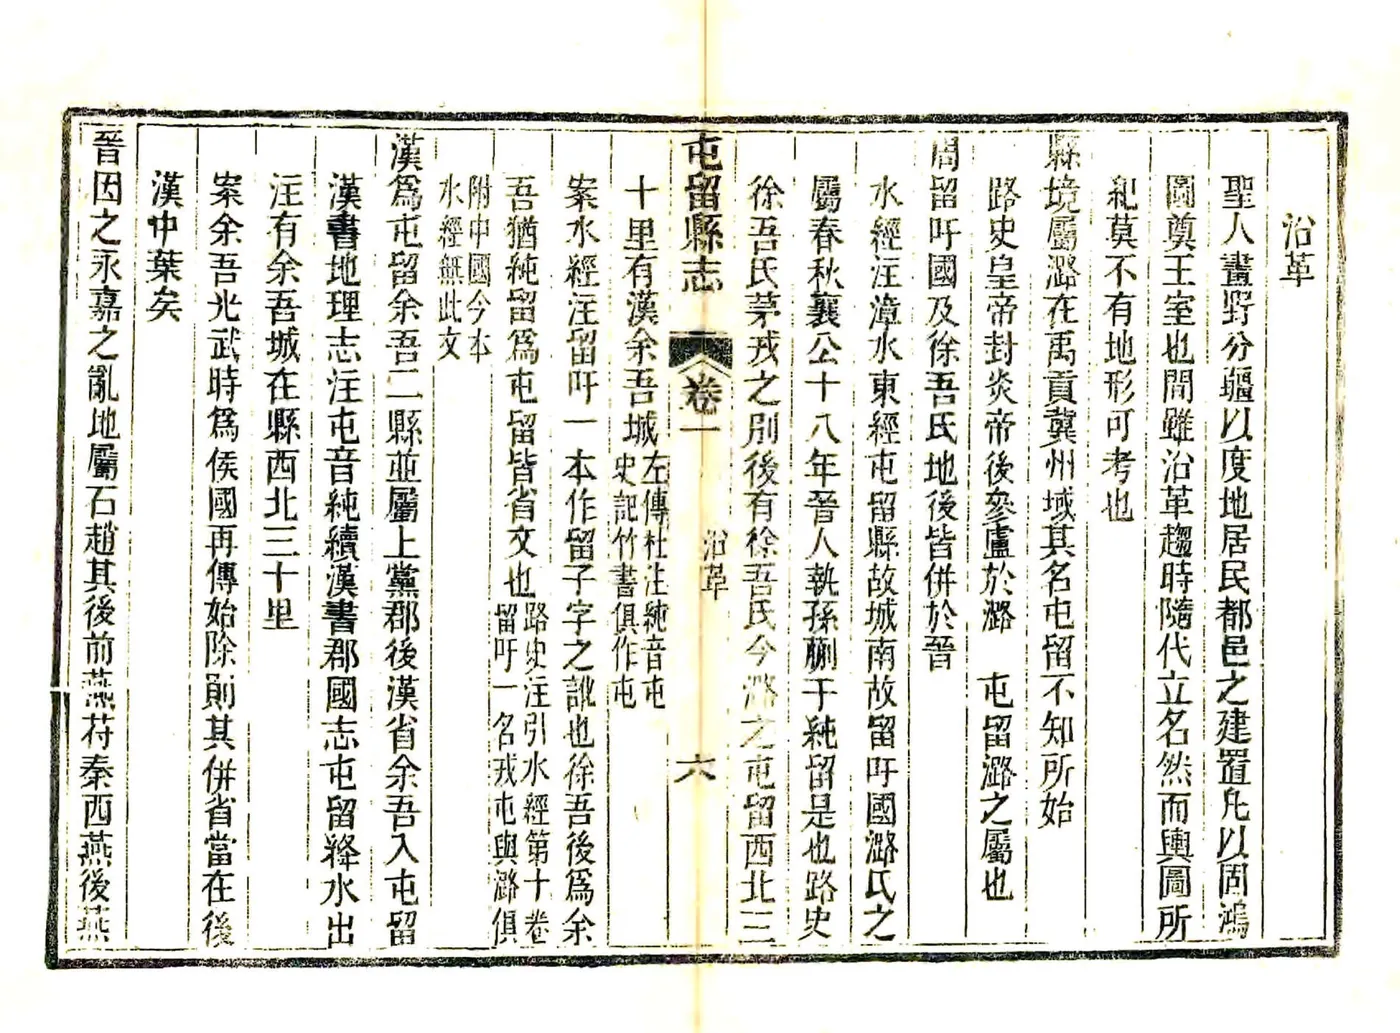 沿革
聖人畫野分疆以度地居民都邑之建置凡以固鴻
圖奠王室也間雖沿革趨時隨代立名然而輿圖所
紀莫不有地形可考也
縣境屬潞在禹貢冀州域其名屯留不知所始
路史皇帝封炎帝後參盧於潞 屯留潞之屬也
周留吁國及徐吾氏地後皆併於晉
水經注漳水東經屯留縣故城南故留吁國潞氏之
屬春秋襄公十八年晉人執孫蒯于純留是也路史
徐吾氏茅戎之別後有徐吾氏今潞之屯留西北三
屯留縣志 卷一 沿革 六
十里有漢余吾城左傳杜注純音屯
史記竹書俱作屯
案水經注留吁一本作留子字之訛也徐吾後爲余
吾猶純留爲屯留皆省文也路史注引水經第十卷
留吁一名戎屯與潞俱
附中國今本
水經無此文
漢爲屯留余吾二縣並屬上黨郡後漢省余吾入屯留
漢書地理志注屯音純續漢書郡國志屯留絳水出
注有余吾城在縣西北三十里
案余吾光武時爲侯國再傳始除則其併省當在後
漢中葉矣
晉因之永嘉之亂地屬石趙其後前燕苻秦西燕後燕